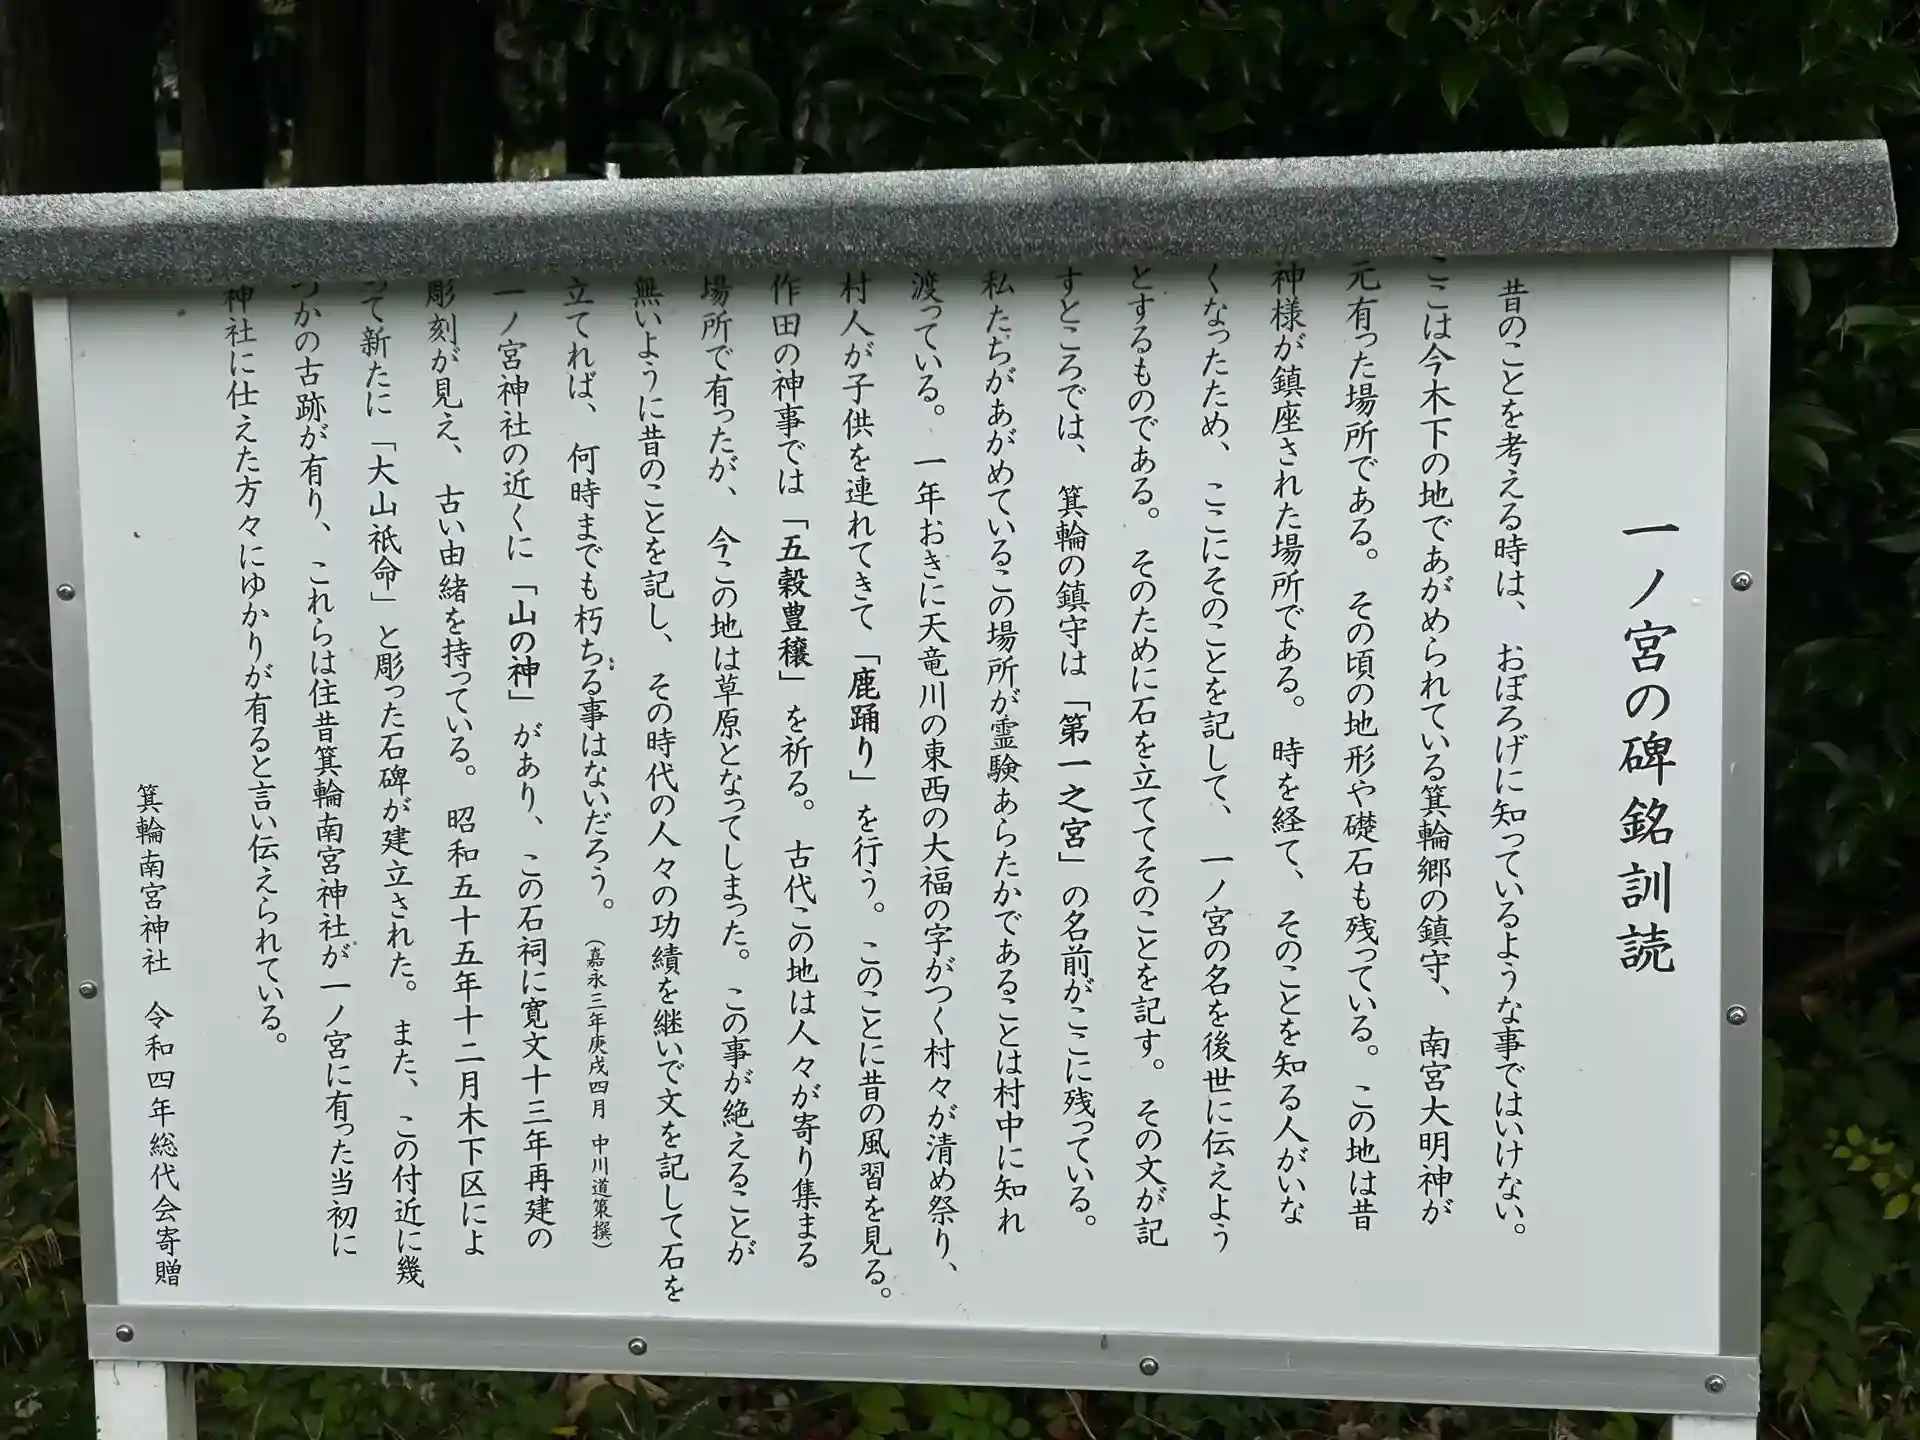 一ノ宮の碑銘訓読
昔のことを考える時は、おぼろげに知っているような事ではいけない。
ここは今木下の地であがめられている箕輪郷の鎮守、南宮大明神が
元有った場所である。その頃の地形や礎石も残っている。この地は昔
神様が鎮座された場所である。時を経て、そのことを知る人がいな
くなったため、ここにそのことを記して、一ノ宮の名を後世に伝えよう
とするものである。そのために石を立ててそのことを記す。その文が記
すところでは、箕輪の鎮守は「第一之宮」の名前がここに残っている。
私たちがあがめているこの場所が霊験あらたかであることは村中に知れ
渡っている。一年おきに天竜川の東西の大福の字がつく村々が清め祭り、
村人が子供を連れてきて「鹿踊り」を行う。このことに昔の風習を見る。
作田の神事では「五穀豊穣」を祈る。古代この地は人々が寄り集まる
場所で有ったが、今この地は草原となってしまった。この事が絶えることが
無いように昔のことを記し、その時代の人々の功績を継いで文を記して石を
立てれば、何時までも朽ちる事はないだろう。（嘉永三年庚戌四月 中川道策撰）
一ノ宮神社の近くに「山の神」があり、この石祠に寛文十三年再建の
彫刻が見え、古い由緒を持っている。昭和五十五年十二月木下区によ
って新たに「大山祇命」と彫った石碑が建立された。また、この付近に幾
つかの古跡が有り、これらは往昔箕輪南宮神社が一ノ宮に有った当初に
神社に仕えた方々にゆかりが有ると言い伝えられている。
箕輪南宮神社 令和四年総代会寄贈